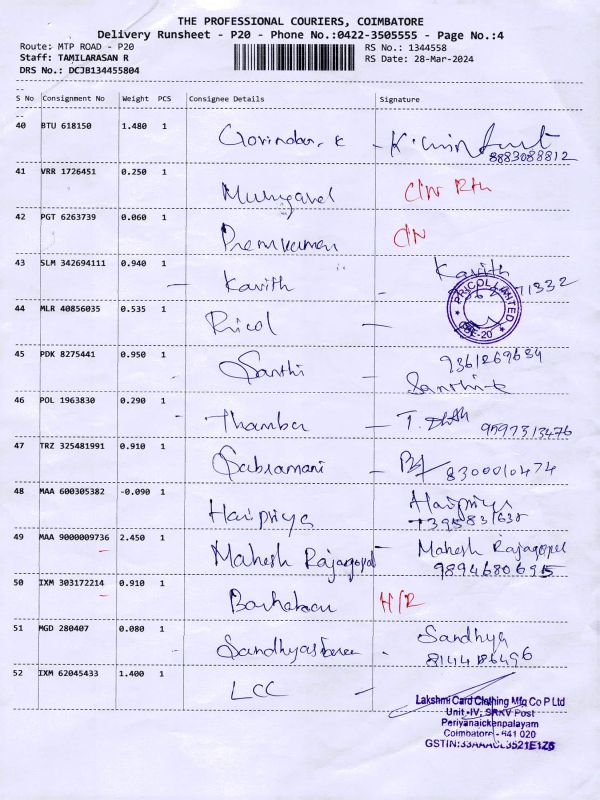 THE PROFESSIONAL COURIERS, COIMBATORE
Delivery Runsheet - P20 - Phone No.:0422-3505555 - Page No.:4
Route: MTP ROAD - P20
RS No.: 1344558
Staff: TAMILARASAN R
RS Date: 28-Mar-2024
DRS No.: DCJB134455804
S No Consignment No Weight PCS Consignee Details Signature
40 BTU 618150 1.480 1
8883088812
41 VRR 1726451 0.250 1 Murugavel
42 PGT 6263739 0.060 1 Premkumar
43 SLM 342694111 0.940 1 Kavith Kavith
PRICOL LIMITED
CBE-20
44 MLR 40856035 0.535 1 Pricol
45 PDK 8275441 0.950 1 Santhi
46 POL 1963830 0.290 1
9597313476
47 TRZ 325481991 0.910 1 Sabramani
8300010474
48 MAA 600305382 -0.090 1 Haripriya Haripriya
49 MAA 9000009736 2.450 1 Mahesh Rajagopal Mahesh Rajagopal
50 IXM 303172214 0.910 1 H/R
51 MGD 280407 0.080 1 Sandhya
52 IXM 62045433 1.400 1 LCC
Lakshmi Card Clothing Mfg Co P Ltd
Unit-IV, SRKV Post
Periyanaickenpalayam
Coimbatore - 641 020